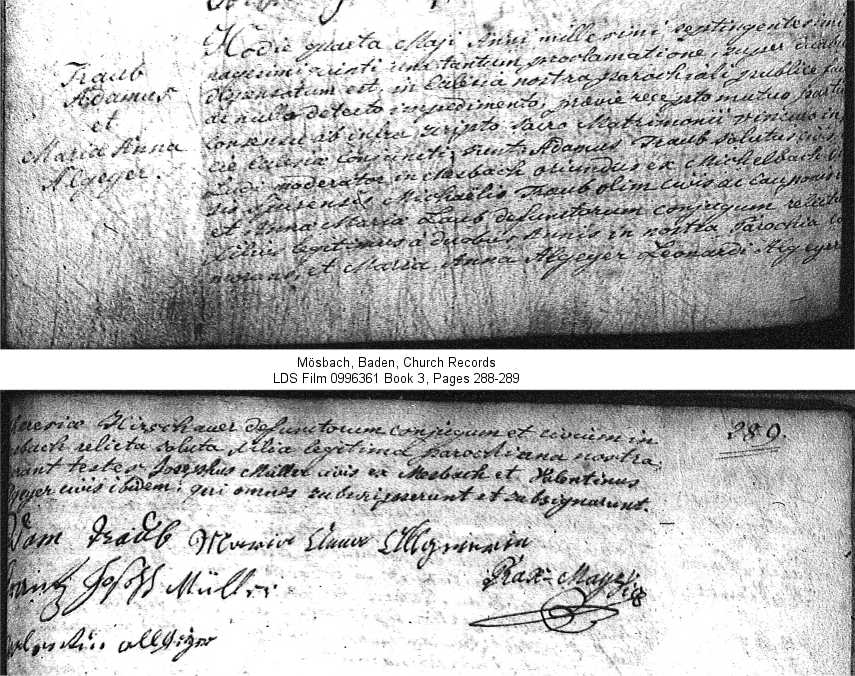 Traub
Adamus
et
Maria Anna
Algeyer.
Hodie quarta Maji Anni millesimi septingentesimi
nagesimi quinti una tantum proclamatione, super duabus
dispensatum est, in Ecclesia nostra parochiali publice
ac nullo detecto impedimento, praevie recepto mutuo
consensu ab infra scripto Sacro Matrimonii vinculo in
Ecclesia conjuncti sunt Adamus Traub solutus civis
Ludi moderator in Mosbach oriundus ex Michelbach
Spirensis Michaelis Traub olim civis ac cauponis
et Anna Maria Laub defunctorum conjugum relictus
filius legitimus a duobus Annis in nostra Parochia
morans, et Maria Anna Algeyer Leonardi Algeyer
Mösbach, Baden, Church Records
LDS Film 0996361 Book 3, Pages 288-289
289.
Hirschauer defunctorum conjugum et civium in
sbach relicta soluta filia legitima parochiana nostra,
rant testes Josephus Müller civis ex Mosbach et Valentinus
lgeyer civis ibidem: qui omnes subscripserunt et subsignarunt.
Adam Traub Maria Anna Allgeierin
Frantz Joseph Müller
Max: Mayer
Valentin allgeier